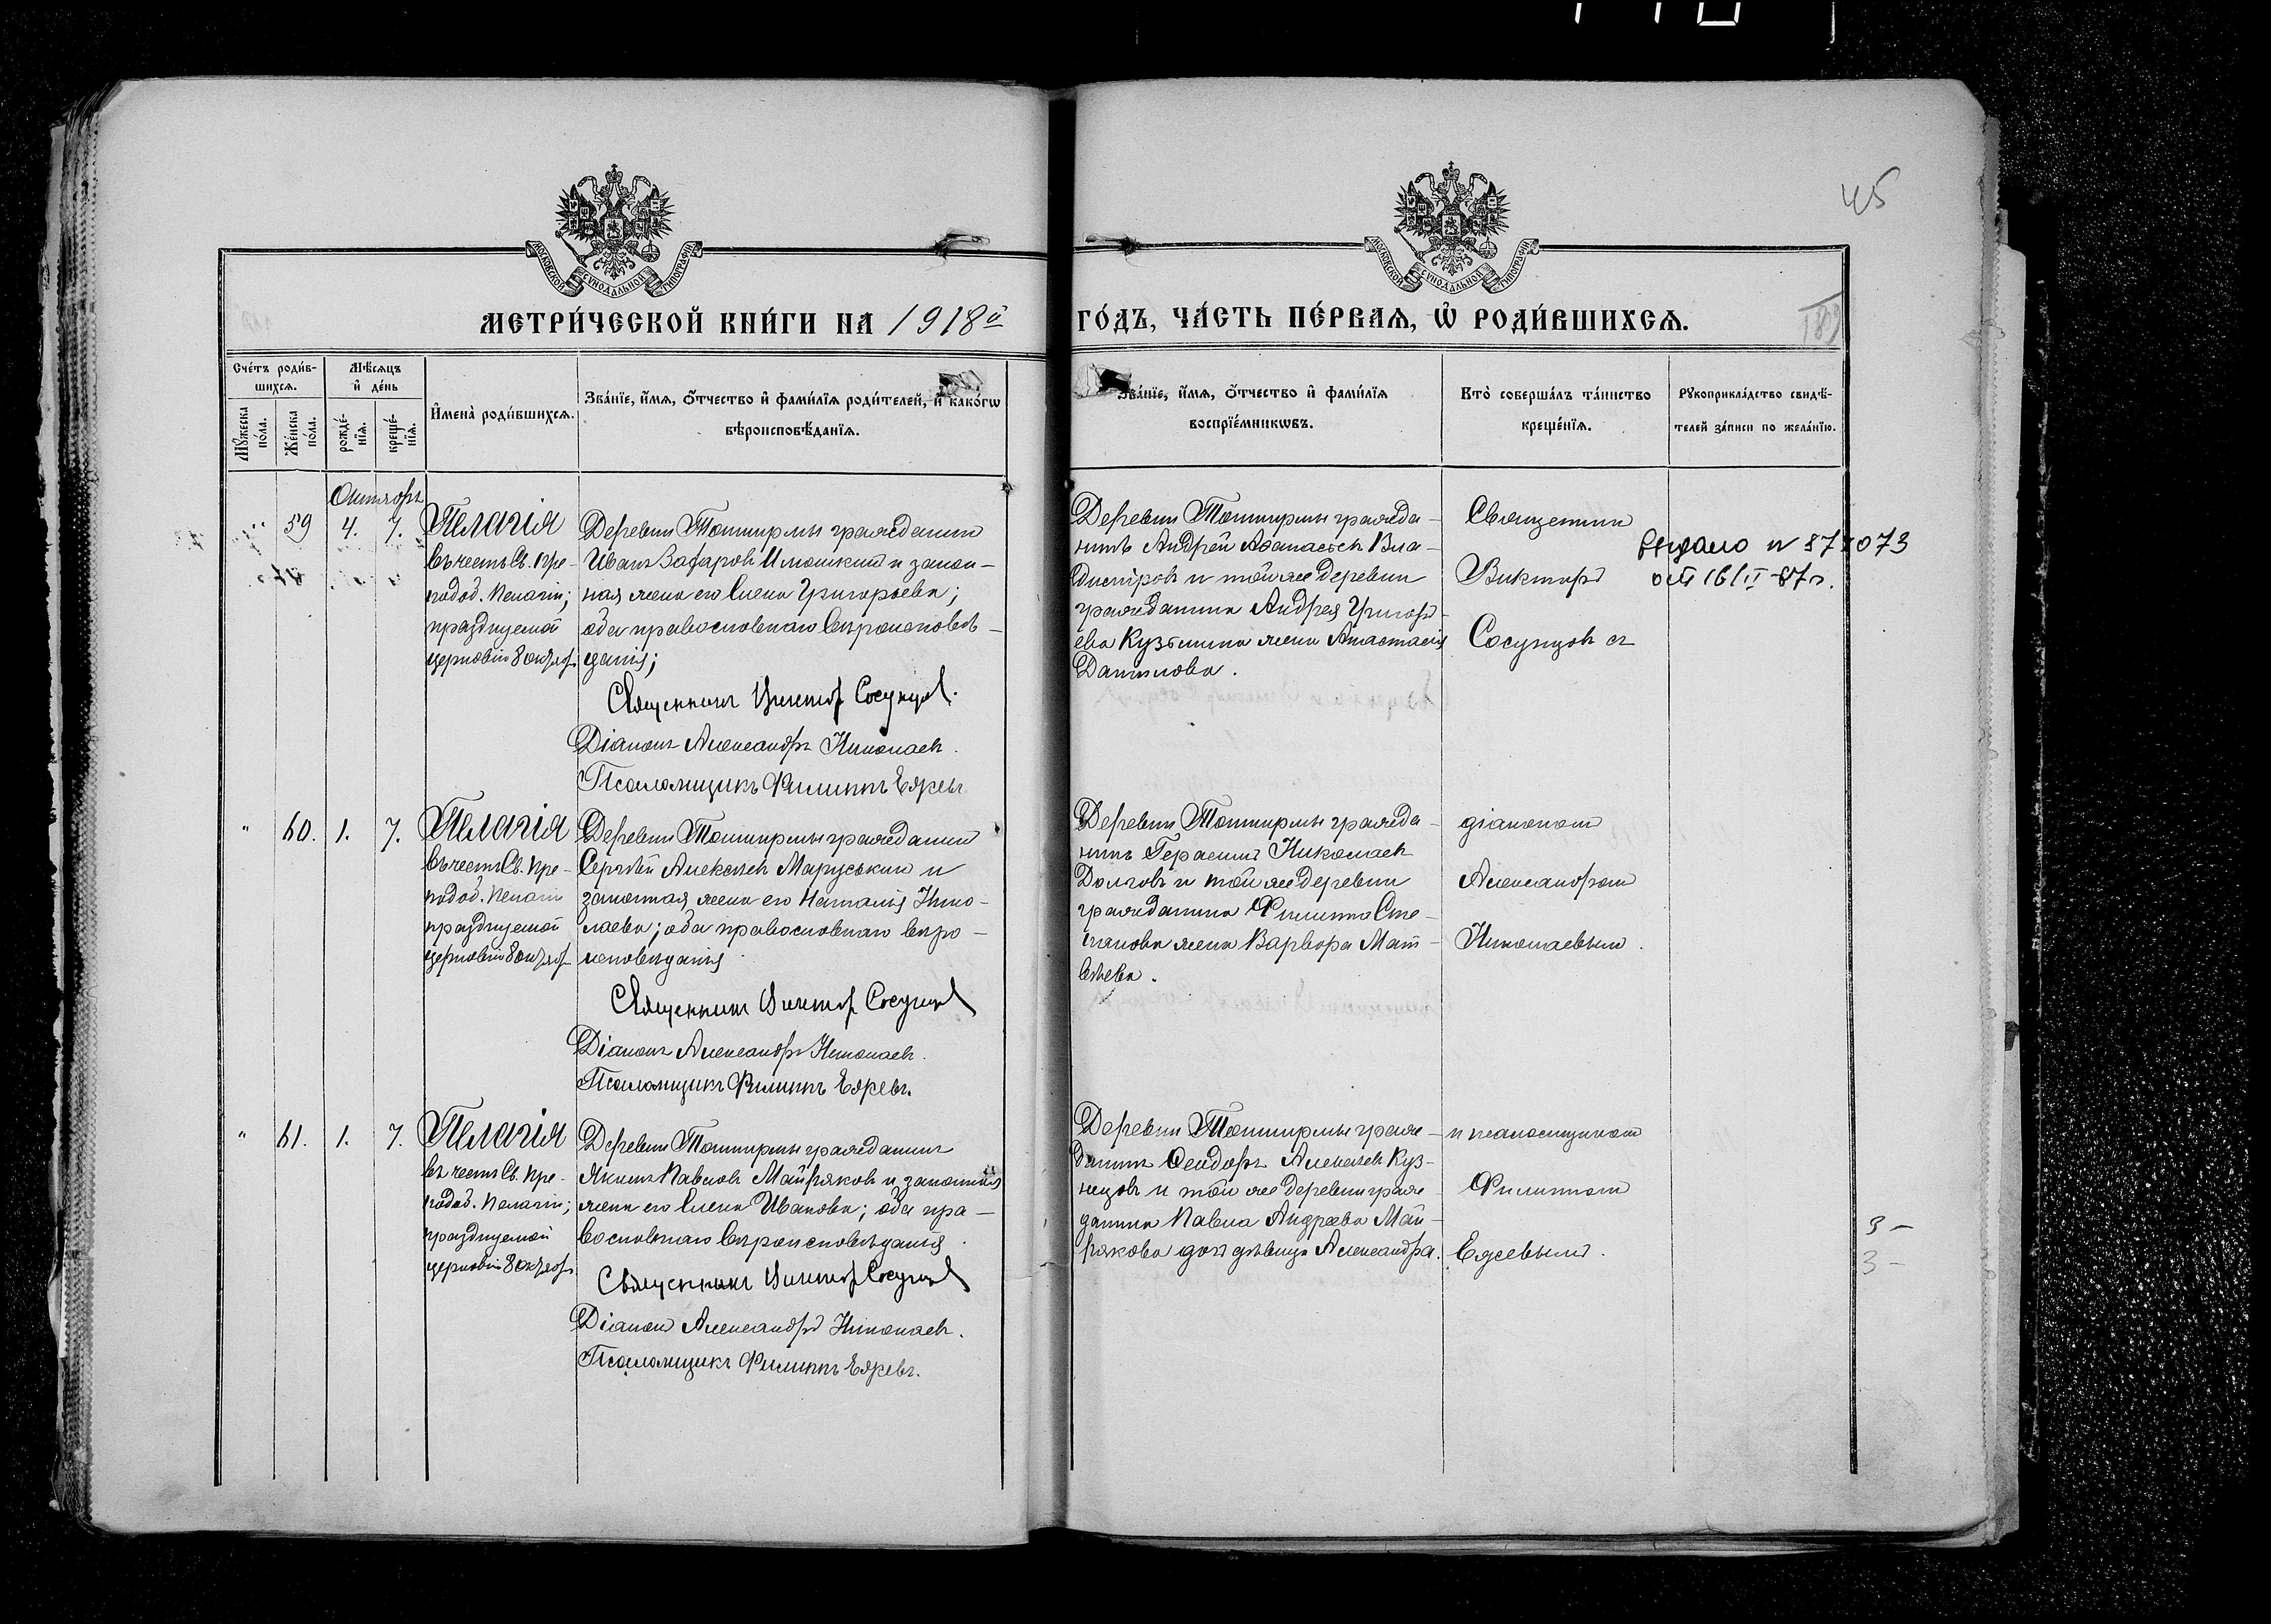 45
МОСКОВСКОЙ СѴНОДАЛЬНОЙ ТИПОГРАФІИ
МОСКОВСКОЙ СѴНОДАЛЬНОЙ ТИПОГРАФІИ
МЕТРИ́ЧЕСКОЙ КНИ́ГИ НА 1918й
ГО́ДЪ, ЧА́СТЬ ПЕ́РВАЯ, Ѡ РОДИ́ВШИХСЯ.
Сче́тъ роди́в-
шихся.
Мѣ́сяцъ
и де́нь
Мꙋ́жеска
по́ла.
Же́нска
по́ла.
рожде́-
нїя.
креще́-
нїя.
И҆мена̀ роди́вшихся.
Зва́нїе, и҆́мя, о҆́тчество и҆ фами́лїя роди́телей, и҆ како́гѡ
вѣроисповѣ́данїя.
Зва́нїе, и҆́мя, о҆́тчество и҆ фами́лїя
воспрїе́мникѡвъ.
Кто̀ соверша́лъ та́инство
креще́нїя.
Рꙋкоприкла́дство свидѣ́-
телей за́писи по жела́нїю.
Октябрь
" 59 4. 7. Пелагія
въ честь Св. Пре-
подоб. Пелагіи;
празднуемой
церковію 8 октяб.
Деревни Тошкирмы гражданин
Иван Захаров и закон-
ная жена его Елена Григорьева;
оба православнаго вероисповѣ-
данія;
Священникъ Виктор Сосунцов.
Діаконъ Александръ Николаевъ.
Псаломщикъ Филиппъ
Деревни Тошкирмы гражда-
нинъ Андрей Афанасьев Вла-
димиров и той же деревни
гражданина Андрея Григорь-
ева Кузьмина жена Анастасія
Данилова.
Священник
Виктор
Сосунцов с
Выдано
от 16/II-87г.
" 60. 1. 7. Пелагія
въ честь Св. Пре-
подоб. Пелагіи
празднуемой
церковію 8 октяб.
Деревни Тошкирмы гражданин
Сергѣй Алексѣев Маруськин и
законная жена его Наталія Нико-
лаева; оба православнаго веро-
исповѣданія
Священникъ Виктор Сосунцов
Діаконъ Александръ Николаевъ.
Псаломщикъ Филиппъ
Деревни Тошкирмы гражда-
нинъ Герасим Николаев
Долгов и той же деревни
гражданина Филиппа Сте-
панова жена Варвара Мат-
вѣева.
діаконом
Александром
Николаевым.
" 61. 1. 7. Пелагія
въ честь Св. Пре-
подоб. Пелагіи;
празднуемой
церковію 8 октяб.
Деревни Тошкирмы гражданинъ
Яким Павлов Майряков и законная
жена его Елена Иванова; оба пра-
вославнаго вероисповѣданія.
Священникъ Виктор Сосунцов
Діакон Александр Николаевъ.
Псаломщикъ Филиппъ
Деревни Тошкирмы граж-
данинъ Алексѣев Куз-
нецов и той же деревни граж-
данина Павла Андреева Май-
рякова дочь дѣвица Александра.
и псаломщиком
Филиппом
3 -
3 -